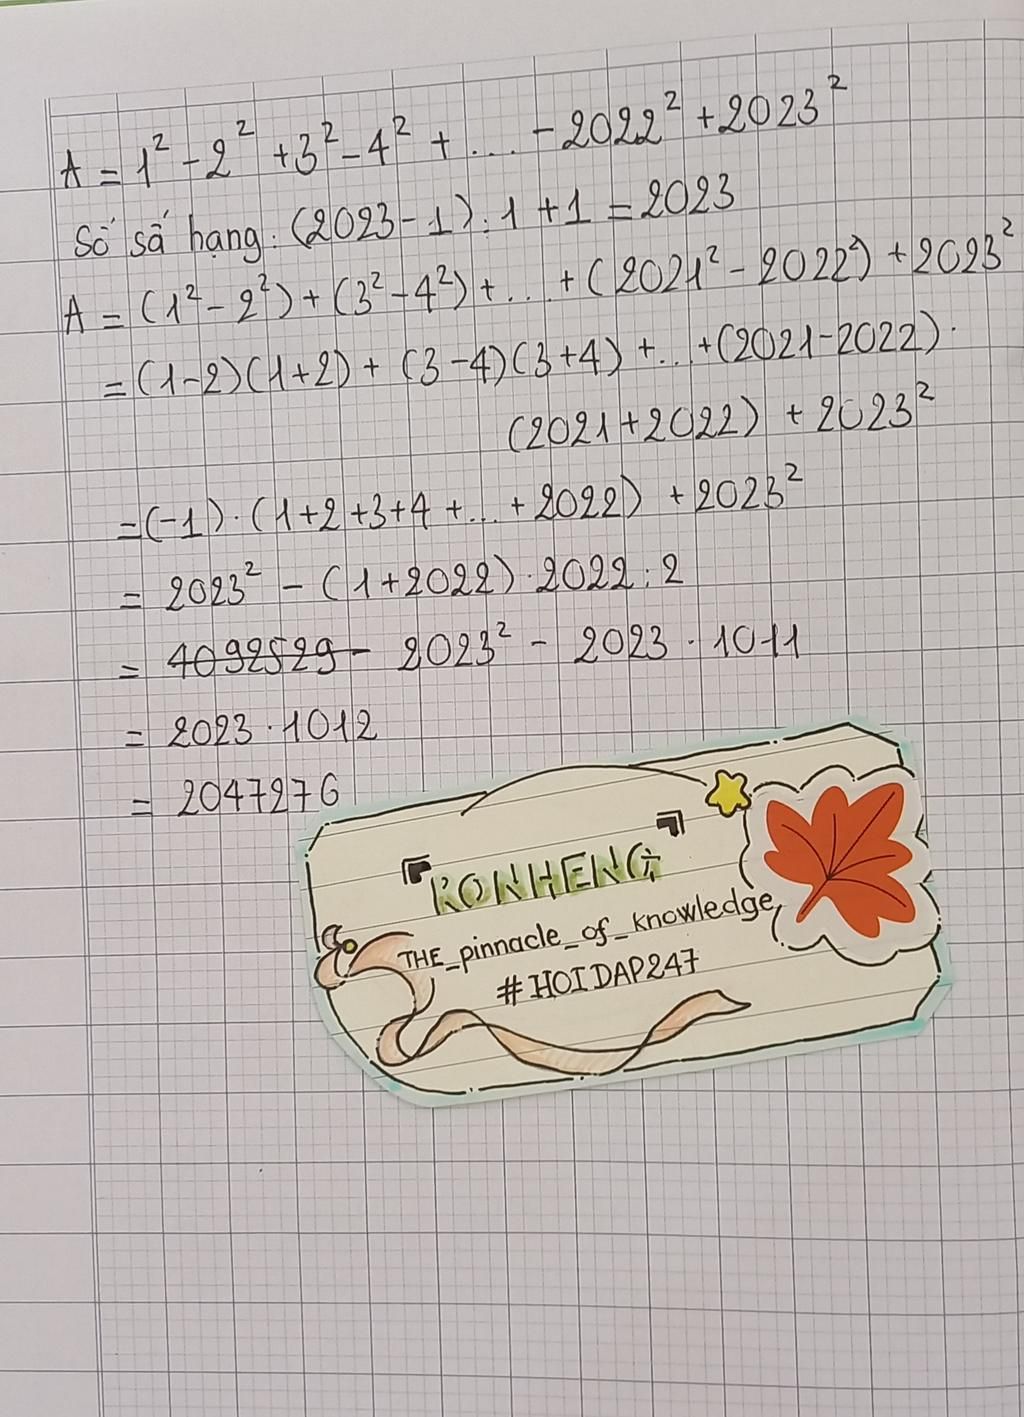 A = 1² - 2² + 3² - 4² + ... - 2022² + 2023²
Số số hạng: (2023 - 1) : 1 + 1 = 2023
A = (1² - 2²) + (3² - 4²) + ... + (2021² - 2022²) + 2023²
= (1-2)(1+2) + (3-4)(3+4) + ... + (2021-2022).
(2021+2022) + 2023²
= (-1) · (1+2+3+4+...+2022) + 2023²
= 2023² - (1+2022) · 2022 : 2
= 4092529 - 2023² - 2023 · 1011
= 2023 · 1012
= 2047276
『RONHENG』
THE_pinnacle_of_knowledge
#HOIDAP247